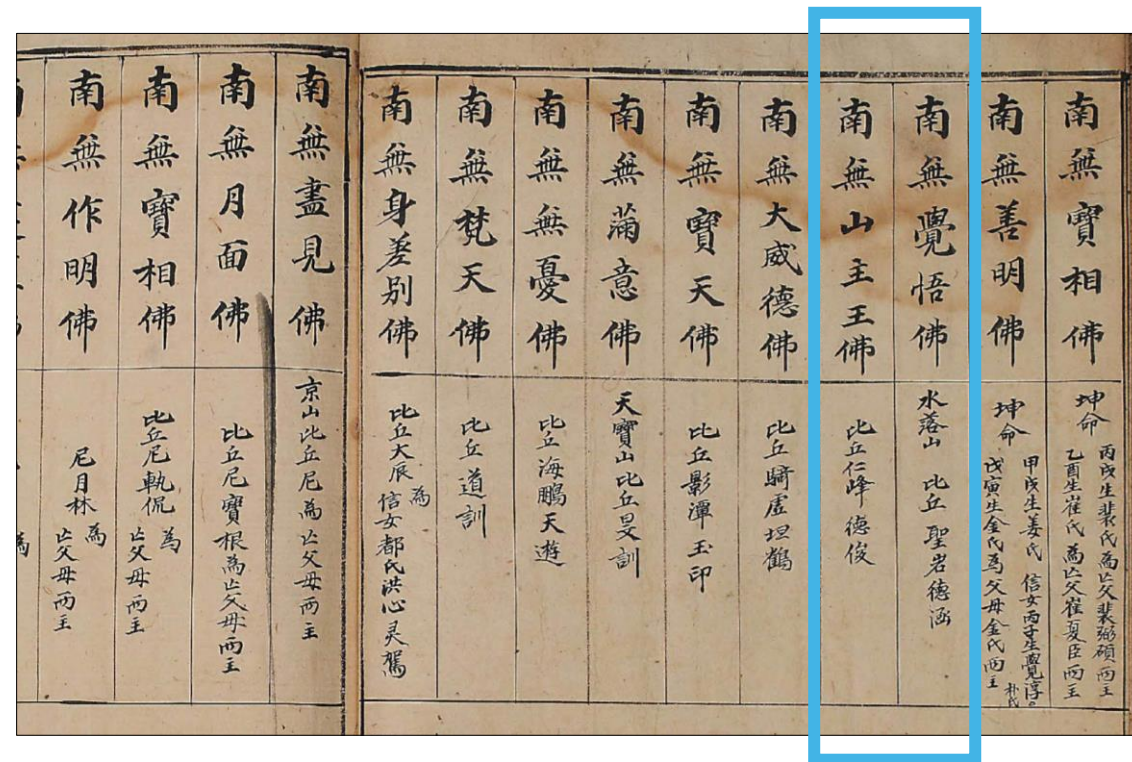 南無寶相佛
坤命 丙戌生裴氏為亡父裴弼碩兩主
乙酉生崔氏為亡父崔夏臣兩主
南無善明佛
坤命 甲戌生姜氏 信女丙子生覺淳 朴氏
戊寅生金氏為父母金氏兩主
南無覺悟佛
水落山 比丘 聖岩德涵
南無山主王佛
比丘仁峰德俊
南無大威德佛
比丘騎虛坦鶴
南無寶天佛
比丘影潭玉印
南無滿意佛
天寶山比丘旻訓
南無無憂佛
比丘海鵬天遊
南無梵天佛
比丘道訓
南無身差別佛
比丘大辰 為
信女都氏洪心灵駕
南無盡見佛
京山比丘尼為亡父母兩主
南無月面佛
比丘尼寶根為亡父母兩主
南無寶相佛
比丘尼軌侃 為
亡父母兩主
南無作明佛
尼月林 為
亡父母兩主
為